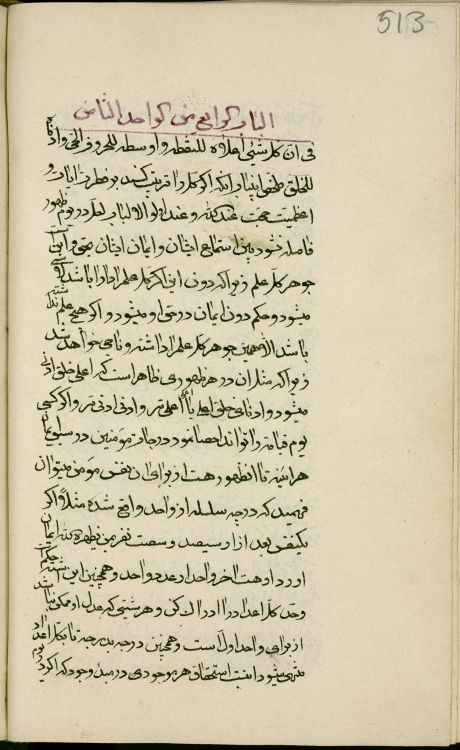 513
الباب الرابع من الواحد الثامن
فی ان کل شیئی اعلاه للنقطه و اوسطه للحروف الحی و ادناه
للخلق ملخص این باب انکه اگر کل را تربیت کنند بر فطرت ایات و
اعظمیت حجت عند الله و عند اولوالالباب لعل در یوم ظهور
فاصله نشود بین استماع ایشان و ایمان ایشان بمن و این است
جوهر کل علم زیرا که دون این اگر کل علم را دارا باشد
میشود و حکم دون ایمان در حق او میشود و اگر هیچ علم
باشد الا همین جوهر کل علم را داشته و ناجی خواهد شد
زیرا که مثل ان در هر ظهوری ظاهر است که اعلی خلق ادنی
میشود و ادنای خلق اعلی اعلی تر و ادنی ادنی تر و اگر کسی
یوم قیامه را تواند احصا نمود درجات مؤمنین در سبیل ایمان
هراینه تا ان ظهور هست از برای ان نفس مؤمن میتوان
فهمید که درجه سلسله از واحد واقع شده مثلا اگر
یکنفس بعد از سیصد و سصت نفر بمن یظهره الله ایمان
اورد او هست اخر واحد از عدد واحد و همچنین این است حکم
وحدت کل اعداد را ادراک کن و هر شئی که عدل او ممکن نباشد
از برای واحد اول است و همچنین درجه بدرجه تا بکل اعداد
منتهی میشود اینست استحقاق هر موجودی در مبدء وجود که اگر در یوم